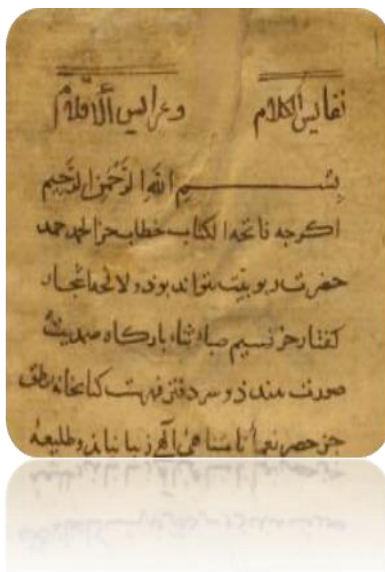 نفایس الکلام وعرایس الاقلام
بسم الله الرحمن الرحیم
اکرجه فاتحه الکتاب خطاب جز الحمد حمد
حضرت ربوبیت نتواند بوذ و لایحه
کفتار جز نسیم صباء ثناء بارکاه صمدیت
صورت نبندذ و سر دفتر فهرست کتابخانه نطق
جز حصر نعماء نامتناهی الهی و طلیعه